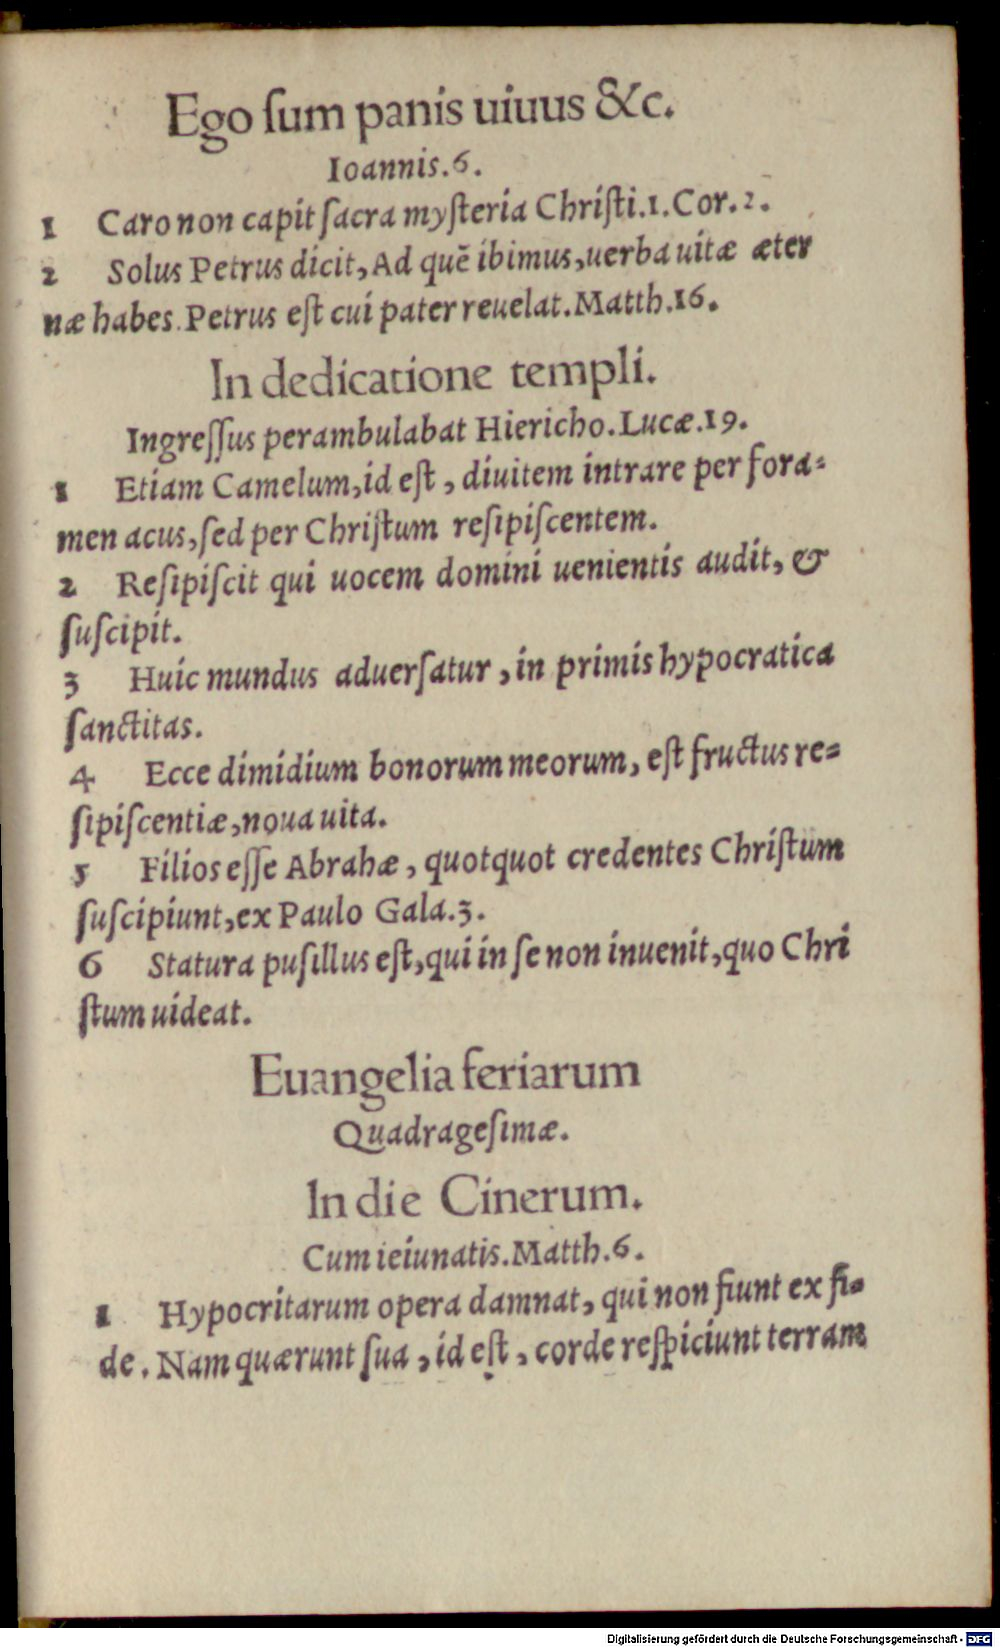 Ego ſum panis uiuus &c.
Ioannis.6.
1 Caro non capit ſacra myſteria Chriſti.1.Cor.2.
2 Solus Petrus dicit, Ad quẽ ibimus, uerba uitæ æter
næ habes. Petrus eſt cui pater reuelat. Matth.16.
In dedicatione templi.
Ingreſſus perambulabat Hiericho. Lucæ.19.
1 Etiam Camelum, id eſt, diuitem intrare per fora-
men acus, ſed per Chriſtum reſipiſcentem.
2 Reſipiſcit qui uocem domini uenientis audit, &
ſuſcipit.
3 Huic mundus aduerſatur, in primis hypocratica
ſanctitas.
4 Ecce dimidium bonorum meorum, eſt fructus re-
ſipiſcentiæ, noua uita.
5 Filios eſſe Abrahæ, quotquot credentes Chriſtum
ſuſcipiunt, ex Paulo Gala.3.
6 Statura puſillus eſt, qui in ſe non inuenit, quo Chri
ſtum uideat.
Euangelia feriarum
Quadrageſimæ.
In die Cinerum.
Cum ieiunatis. Matth.6.
1 Hypocritarum opera damnat, qui non fiunt ex fi-
de. Nam quærunt ſua, id eſt, corde reſpiciunt terram
Digitalisierung gefördert durch die Deutsche Forschungsgemeinschaft - DFG